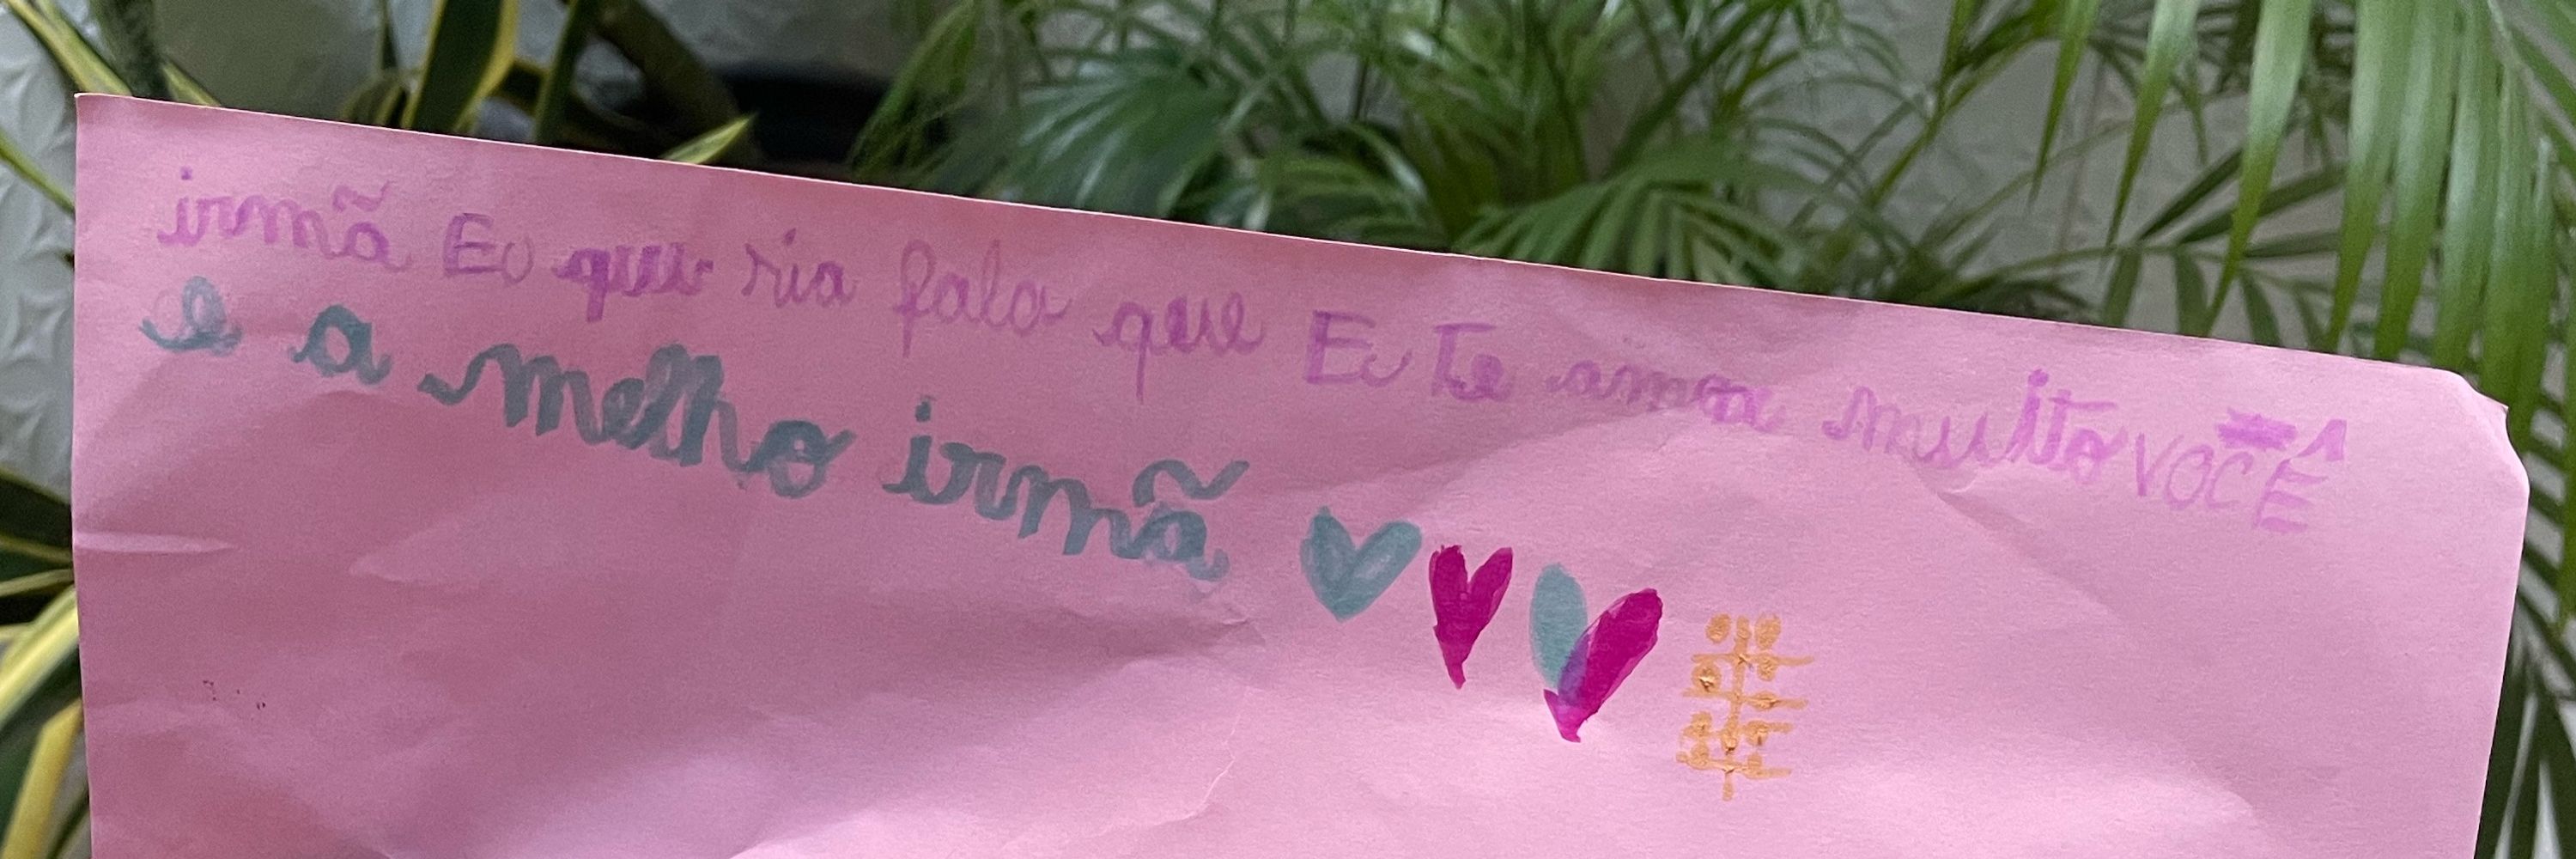 irmã Eu que ria fala que Eu Te amoa muito VOCÊ
e a melho irmã